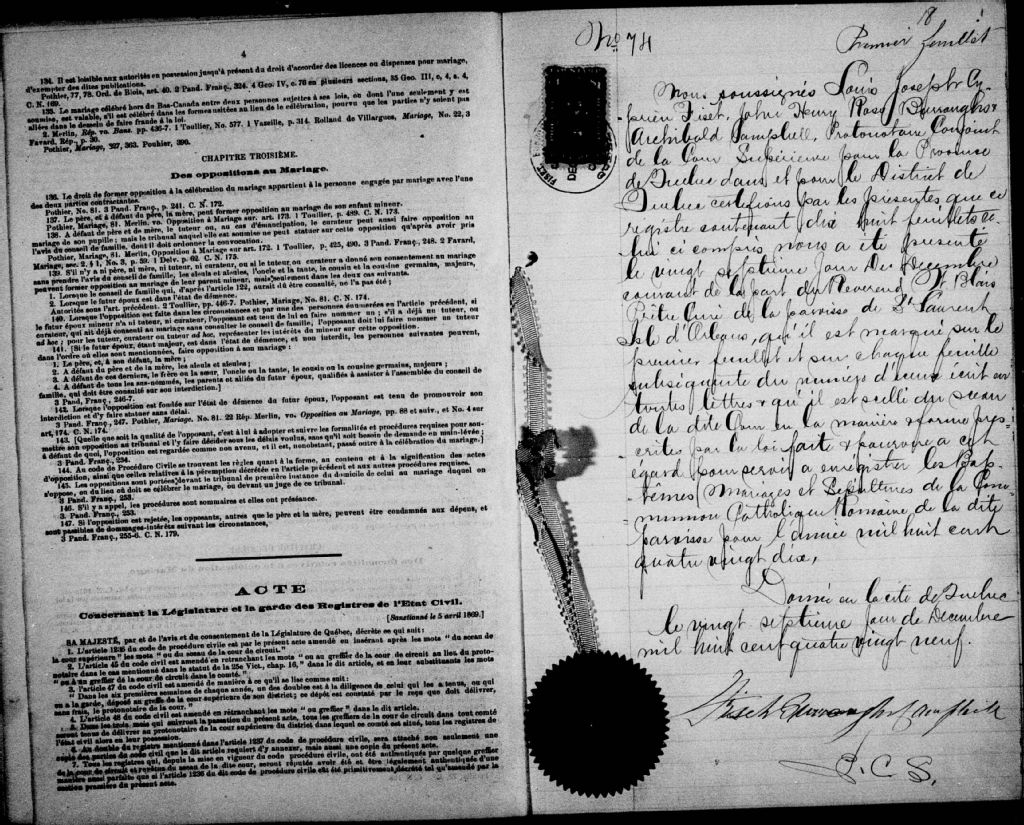 4
134. Il est loisible aux autorités en possession jusqu'à présent du droit d'accorder des licences ou dispenses pour mariage,
d'exempter des dites publications.
Pothier, 77, 78. Ord. de Blois, art. 40. 2 Pand. Franç., 324. 4 Geo. IV, c. 76 en plusieurs sections, 35 Geo. III, c. 4, s. 4,
C. N. 169.
135. Le mariage célébré hors du Bas-Canada entre deux personnes sujettes à ses lois, ou dont l'une seulement y est
soumise, est valable, s'il est célébré dans les formes usitées au lieu de la célébration, pourvu que les parties n'y soient pas
allées dans le dessein de faire fraude à la loi.
2 Merlin, Rép. vo. Bans. pp. 436-7. 1 Toullier, No. 577. 1 Vazeille, p. 314. Rolland de Villargues, Mariage, No. 22, 3
Favard. Rép., p. 36.
Pothier, Mariage, 327, 363. Pouhier, 396.
CHAPITRE TROISIÈME.
Des oppositions au Mariage.
136. Le droit de former opposition à la célébration du mariage appartient à la personne engagée par mariage avec l'une
des deux parties contractantes.
Pothier, No. 81. 3 Pand. Franç., p. 241. C. N. 172.
137. Le père, et à défaut du père, la mère, peut former opposition au mariage de son enfant mineur.
Pothier, Mariage, 81. Merlin, vo. Opposition à Mariage sur. art. 173. 1 Toullier, p. 489. C. N. 173.
138. A défaut de père et de mère, le tuteur ou, au cas d'émancipation, le curateur peut aussi faire opposition au
mariage de son pupille; mais le tribunal auquel elle est soumise ne peut statuer sur cette opposition qu'après avoir pris
l'avis du conseil de famille, dont il doit ordonner la convocation.
Pothier, Mariage, 81. Merlin, Opposition à Mariage sur art. 172. 1 Toullier, p. 425, 490. 3 Pand. Franç., 248. 2 Favard,
Mariage, sec. 2. § 1, No. 3, p. 59. 1 Delv. p. 62. C. N. 175.
139. S'il n'y a ni père, ni mère, ni tuteur, ni curateur, ou si le tuteur ou curateur a donné son consentement au mariage
sans prendre l'avis du conseil de famille, les aïeuls et aïeules, l'oncle et la tante, le cousin et la cousine germains, majeurs,
peuvent former opposition au mariage de leur parent mineur, mais seulement dans les deux cas suivants.
1. Lorsque le conseil de famille qui, d'après l'article 122, aurait dû être consulté, ne l'a pas été;
2. Lorsque le futur époux est dans l'état de démence.
Autorités sous l'art. précédent. 2 Toullier, pp. 466-7. Pothier, Mariage, No. 81. C. N. 174.
140. Lorsque l'opposition est faite dans les circonstances et par une des personnes énumérées en l'article précédent, si
le futur époux mineur n'a ni tuteur, ni curateur, l'opposant est tenu de lui en faire nommer un; s'il a déjà un tuteur ou
curateur, qui ait déjà consenti au mariage sans consulter le conseil de famille, l'opposant doit lui faire nommer un tuteur
ad hoc; pour les tuteur, curateur ou tuteur ad hoc, représenter les intérêts du mineur sur cette opposition.
141. [Si le futur époux, étant majeur, est dans l'état de démence, et non interdit, les personnes suivantes peuvent,
dans l'ordre où elles sont mentionnées, faire opposition à son mariage:
1. Le père, et, à son défaut, la mère;
2. A défaut du père et de la mère, les aïeuls et aïeules;
3. A défaut de ces derniers, le frère ou la sœur, l'oncle ou la tante, le cousin ou la cousine germains, majeurs;
4. A défaut de tous les sus-nommés, les parents et alliés du futur époux, qualifiés à assister à l'assemblée du conseil de
famille, qui doit être consulté sur son interdiction.]
3 Pand. Franç., 246-7.
142. Lorsque l'opposition est fondée sur l'état de démence du futur époux, l'opposant est tenu de promouvoir son
interdiction et d'y faire statuer sans délai.
3 Pand. Franç., 247. Pothier, Mariage, No. 81. 22 Rép. Merlin, vo. Opposition au Mariage, pp. 88 et suiv., et No. 4 sur
art. 174. C. N. 174.
143. [Quelle que soit la qualité de l'opposant, c'est à lui à adopter et suivre les formalités et procédures requises pour sou-
mettre son opposition au tribunal et l'y faire décider sous les délais voulus, sans qu'il soit besoin de demande en main-levée;
à défaut de quoi, l'opposition est regardée comme non avenu, et il est, nonobstant, passé outre à la célébration du mariage.]
3 Pand. Franç., 254.
144. Au Code de Procédure Civile se trouvent les règles quant à la forme, au contenu et à la signification des actes
d'opposition, ainsi que celles relatives à la péremption décrétée en l'article précédent et aux autres procédures requises.
145. Les oppositions sont portées devant le tribunal de première instance du domicile de celui au mariage duquel on
s'oppose, ou du lieu où doit se célébrer le mariage, ou devant un juge de ce tribunal.
3 Pand. Franç., 253.
146. S'il y a appel, les procédures sont sommaires et elles ont préséance.
3 Pand. Franç., 253.
147. Si l'opposition est rejetée, les opposants, autres que le père et la mère, peuvent être condamnés aux dépens, et
sont passibles de dommages-intérêts suivant les circonstances,
3 Pand. Franç., 255-6. C. N. 179.
ACTE
Concernant la Législature et la garde des Registres de l'Etat Civil.
[Sanctionné le 5 avril 1869.]
SA MAJESTÉ, par et de l'avis et du consentement de la Législature de Québec, décrète ce qui suit:
1. L'article 1236 du code de procédure civile est par le présent acte amendé en insérant après les mots "du sceau de
la cour supérieure," les mots "ou du sceau de la cour de circuit."
2. L'article 45 du code civil est amendé en retranchant les mots "ou au greffier de la cour de circuit au lieu du proto-
notaire dans le cas mentionné dans le statut de la 25e Vict., chap. 16," dans le dit article, et en leur substituant les mots
"ou à un greffier de la cour de circuit dans le comté."
3. L'article 47 du code civil est amendé de manière à ce qu'il se lise comme suit:
"Dans les six premières semaines de chaque année, un des doubles est à la diligence de celui qui les a tenus, ou qui
en a la garde, déposé au greffe de la cour supérieure de son district; ce dépôt est constaté par le reçu que doit délivrer,
sans frais, le protonotaire de la cour."
4. L'article 48 du code civil est amendé en retranchant les mots "ou greffier" dans le dit article.
5. Dans les trois mois qui suivront la passation du présent acte, tous les greffiers de la cour de circuit dans tout comté
seront tenus de délivrer au protonotaire de la cour supérieure du district dans lequel ce comté est situé, tous les registres de
l'état civil alors en leur possession.
6. Au double du registre mentionné dans l'article 1237 du code de procédure civile, sera attaché non seulement une
copie des parties du code civil que le dit article requiert d'y annexer, mais aussi une copie du présent acte.
7. Tous les registres qui, depuis la mise en vigueur du code procédure civile, ont été authentiqués par quelque greffier
de la cour de circuit et revêtus du sceau de la dite cour, seront réputés avoir été et être légalement authentiqués d'une
manière aussi parfaite que si l'article 1236 du dit code de procédure civile eût été primitivement décrété tel qu'amendé par la
section première du présent acte.
18
No 74
Premier feuillet
Nous soussignés Louis Joseph Cy-
prien Fiset, John Henry Ross Burroughs &
Archibald Campbell, Protonotaire Conjoint
de la Cour Supérieure pour la Province
de Québec dans et pour le District de
Québec certifions par les présentes que ce
registre contenant dix huit feuillets ce-
lui ci compris nous a été présenté
le vingt septième jour de Décembre
courant de la part du Reverend Blais
Prêtre Curé de la paroisse de St Laurent
Isle d'Orléans, qu'il est marqué sur le
premier feuillet et sur chaque feuille
subséquente du numéro d'iceux écrit en
toutes lettres & qu'il est scellé du sceau
de la dite Cour en la manière & forme pres-
crites par la loi faite & pourvue a cet
égard pour servir a enregistrer les Bap-
têmes Mariages et Sépultures de la Com-
munion Catholique Romaine de la dite
paroisse pour l'année mil huit cent
quatre vingt dix,
Donné en la cité de Québec
le vingt septième jour de Décembre
mil huit cent quatre vingt neuf.
Fiset Burroughs Campbell
P. C. S.